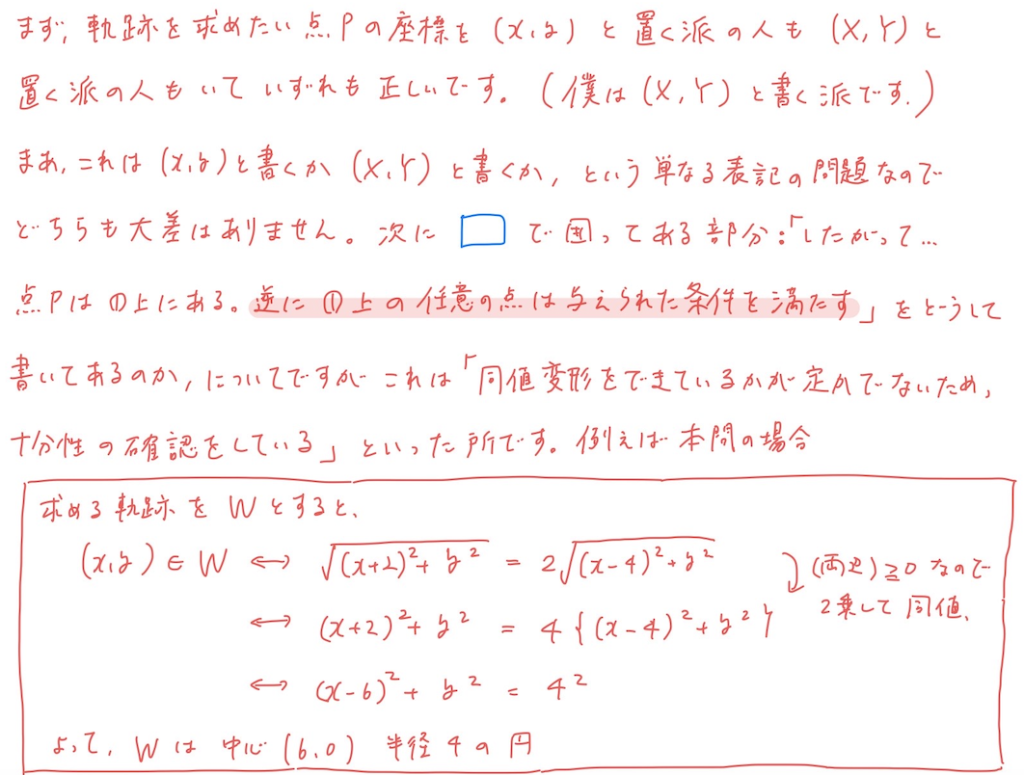 まず, 軌跡を求めたい点Pの座標を (x,y) と置く派の人も (X,Y)と
置く派の人もいて いずれも正しいです。(僕は(X,Y)と書く派です.)
まあ, これは (x,y)と書くか (X,Y)と書くか, という単なる表記の問題なので
どちらも大差はありません。次に □ で囲ってある部分:「したがって…
点Pは①上にある。逆に①上の任意の点は与えられた条件を満たす」をどうして
書いてあるのか, についてですが これは「同値変形をできているかが定かでないため,
十分性の確認をしている」といった所です。例えば本問の場合
求める軌跡を W とすると,
(x,y)∈W ⟷ √((x+2)²+y²) = 2√((x-4)²+y²)
(両辺)≧0 なので
2乗して同値.
⟷ (x+2)²+y² = 4{(x-4)²+y²}
⟷ (x-6)²+y² = 4²
よって, W は 中心(6,0) 半径4の円